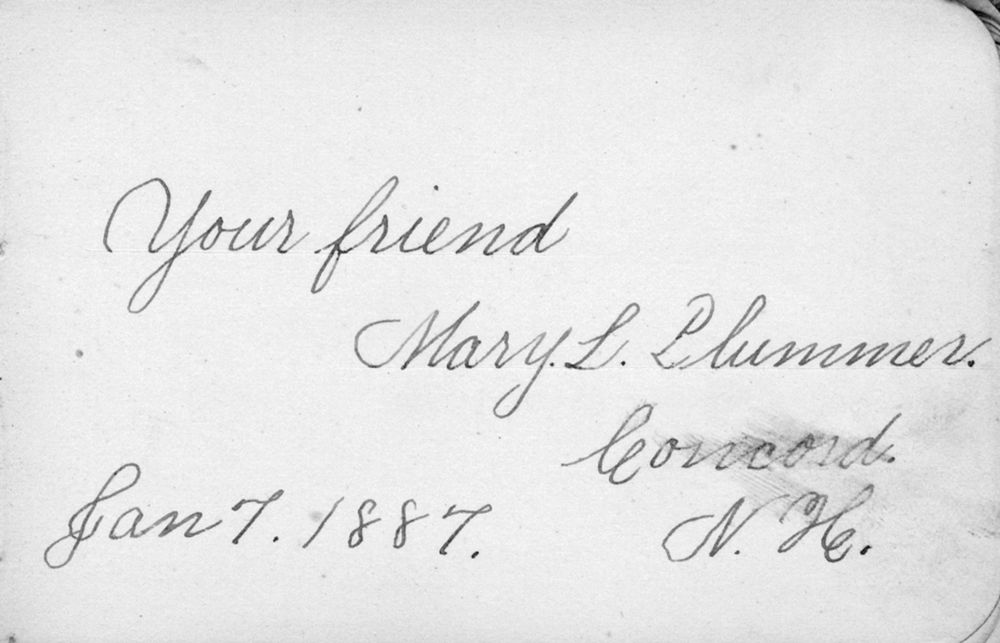 Your friend
Mary. L. Plummer.
Concord.
Jan 7. 1887. N. H.